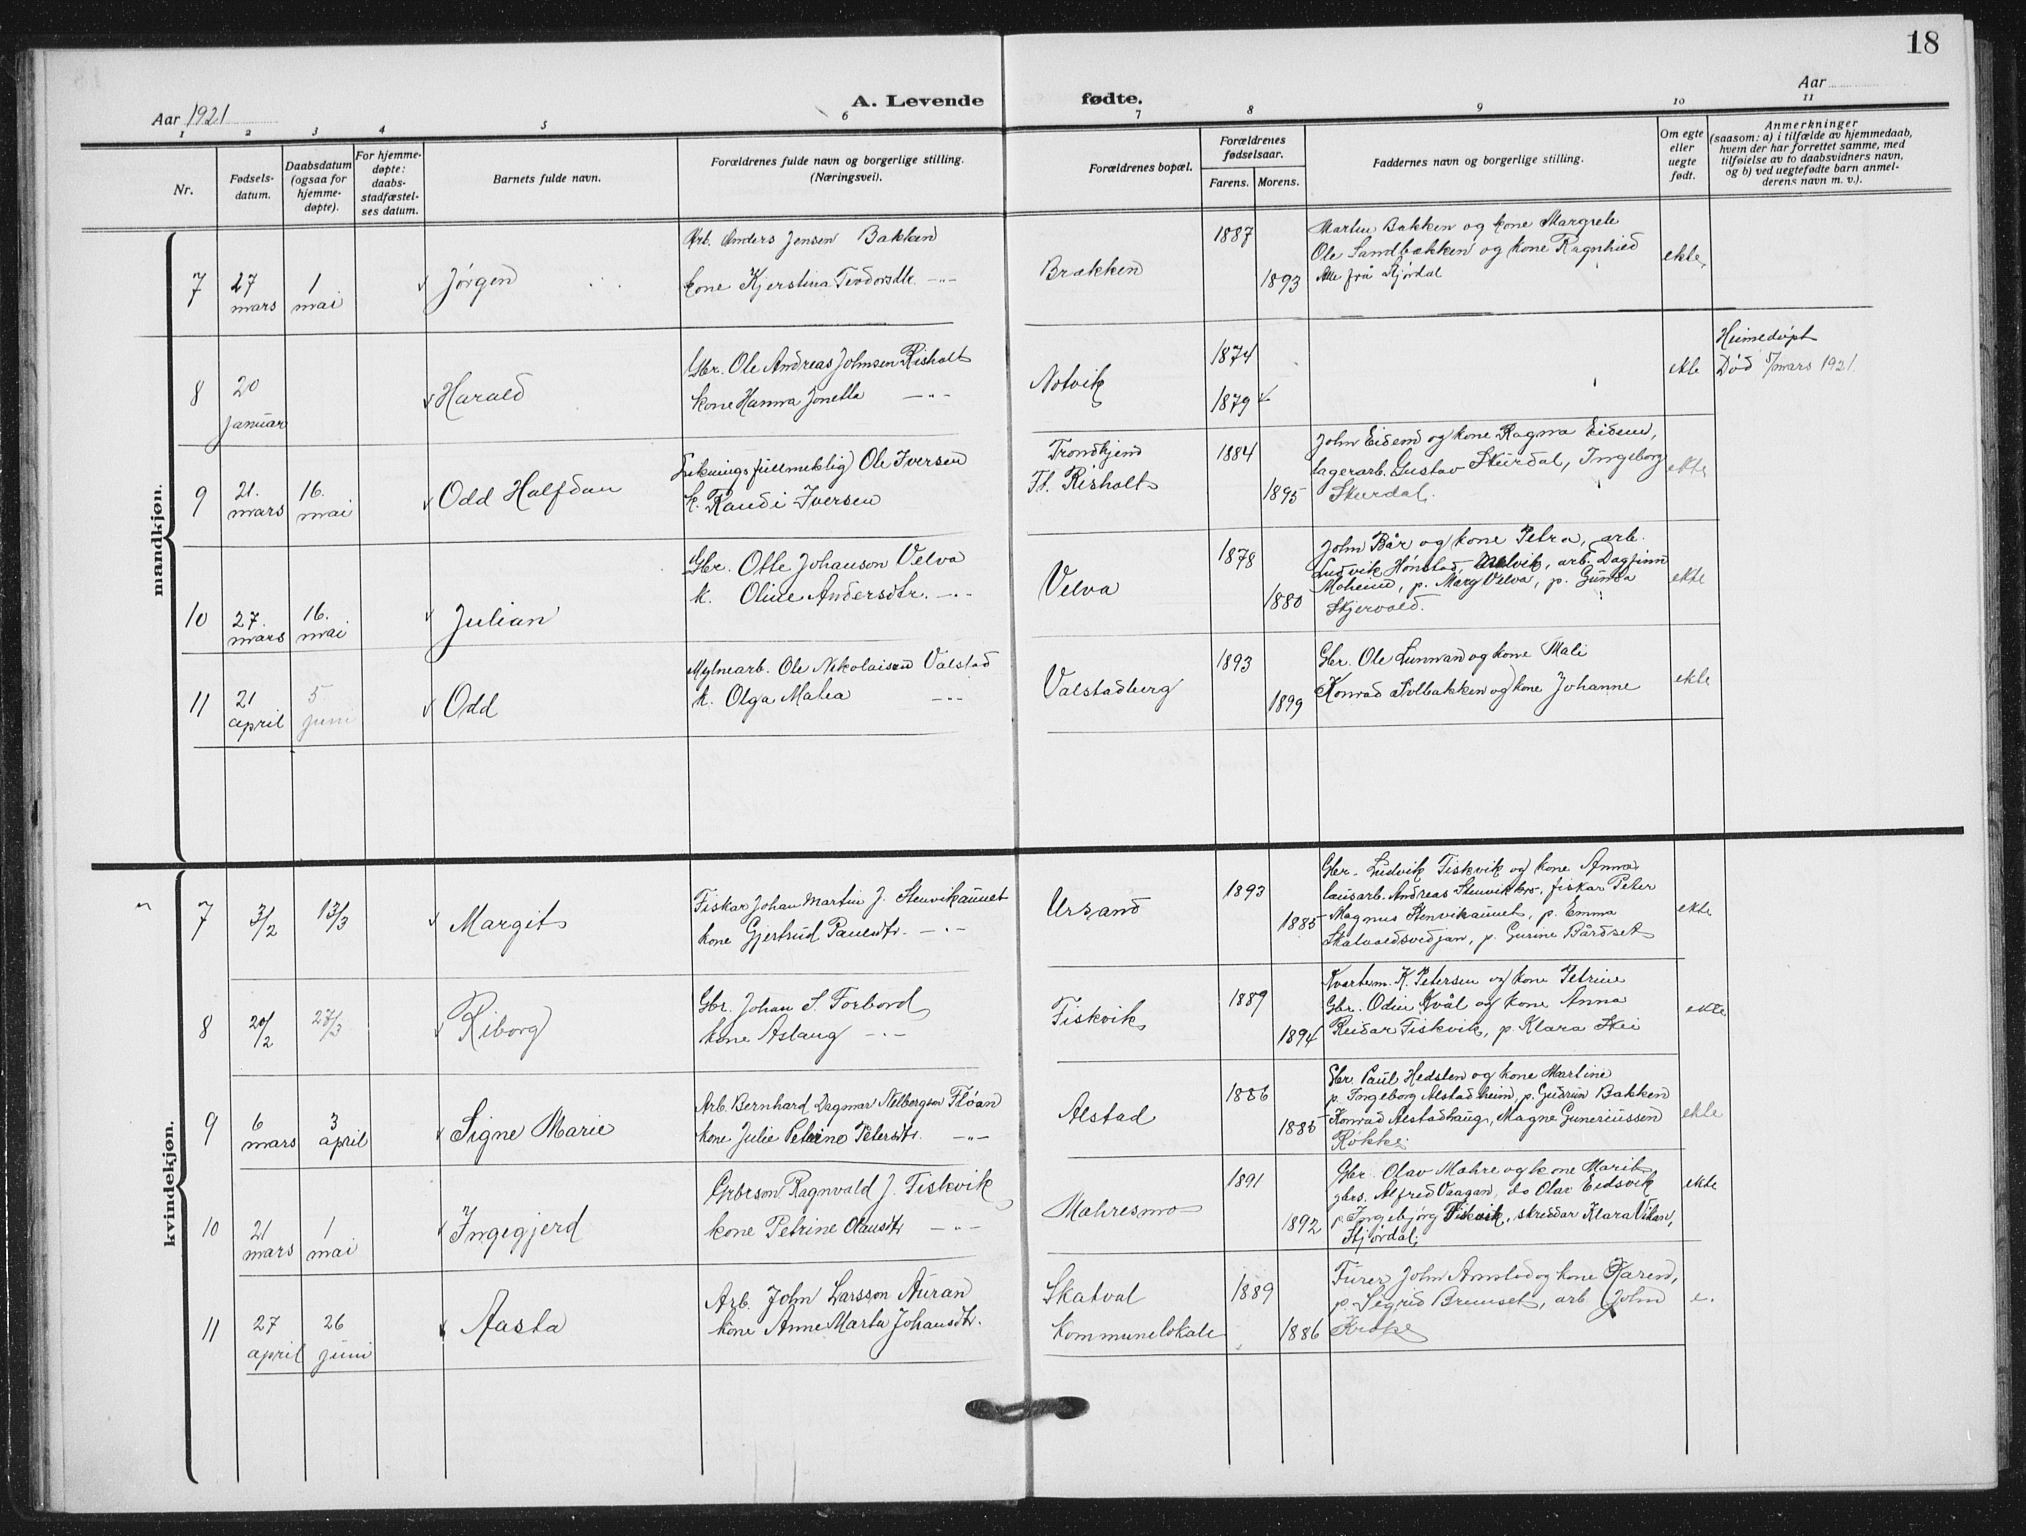 18
Aar 1921
A. Levende fødte.
Aar
1 2 3 4 5 6 7 8 9 10 11
Nr.
Fødsels-
datum.
Daabsdatum
(ogsaa for
hjemme-
døpte).
For hjemme-
døpte:
daabs-
stadfæstel-
ses datum.
Barnets fulde navn.
Forældrenes fulde navn og borgerlige stilling.
(Næringsvei).
Forældrenes bopæl.
Forældrenes
fødselsaar.
Farens. Morens.
Faddernes navn og borgerlige stilling.
Om egte
eller
uegte
født.
Anmerkninger
(saasom: a) i tilfælde av hjemmedaab,
hvem der har forrettet samme, med
tilføielse av to daabsvidners navn,
og b) ved uegtefødte barn anmel-
derens navn m. v.).
mandkjøn.
7
27
mars
1
mai
Jørgen
Arb. Anders Jensen Bakken
kone Kjerstina Teodorsdtr. -"-
Brækken
1887
1893
Martin Bakken og kone Margrete
Ole Sandbækken og kone Ragnhild
Alle frå Stjørdal
ekte
8
20
januar
Harald
Gbr. Ole Andreas Johnsen Risholt
kone Hanna Jonetta -"-
Notvik
1874
1879
ekte
Heimedøpt
Død 5/mars 1921.
9
21.
mars
16.
mai
Odd Halfdan
Ole Iversen
k. Randi Iversen
Trondhjem
Ft. Risholt
1884
1895
John Eidem og kone Ragna Eidem,
lagerarb. Gustav Skurdal, Ingeborg
Skurdal.
ekte
10
27.
mars
16.
mai
Julian
Gbr. Otte Johanson Velva
k. Oline Andersdtr. -"-
Velva
1878
1880
John Bår og kone Petra, arb.
Ludvik Hønstad, arb. Dagfinn
Moheim, p. Marg Velva, p. Gunda
Skjervold.
ekte
11
21
april
5
juni
Odd
Mylnearb. Ole Nikolaisen Valstad
k. Olga Malea -"-
Valstadberg
1893
1899
Gbr. Ole Lunnan og kone Mali
Konrad Solbakken og kone Johanne
ekte
kvindekjøn.
7
3/2
13/3
Margit
Fiskar Johan Martin J. Stenvikaunet
kone Gjertrud Paulsdtr. -"-
Ursand
1893
1885
Gbr. Ludvik Fiskvik og kone Anna
lausarb. Andreas Stenvik, fiskar Peter
Magnus Stenvikaunet, p. Emma
Skatvoldsvedjan, p. Gurine Bårdset
ekte
8
20/2
27/3
Riborg
Gbr. Johan S. Forbord
kone Aslaug -"-
Fiskvik
1889
1894
Kvarterm. K. Petersen og kone Petrine
Gbr. Odin Kvål og kone Anna
Reidar Fiskvik, p. Klara Skei
ekte
9
6
mars
3
april
Signe Marie
Arb. Bernhard Dagmar Flóan
kone Julie Petrine Petersdtr. -"-
Alstad
1886
1885
Gbr. Paul Hedsten og kone Martine
p. Ingeborg Alstadheim, p. Gudrun Bakken
Konrad Alstadhaug, Magne Guneriussen
Røkke.
ekte
10
21
mars
1
mai
Ingegjerd
Grbrson Ragnvald J. Fiskvik
kone Petrine Olausdtr -"-
Mæhresmo
1891
1892
Gbr. Olav Mæhre og kone Marit
gbrs. Alfred Vaagan, do Olav Eidsvik
p. Ingebjørg Fiskvik, skreddar Klara Vikan,
Stjørdal.
ekte
11
27
april
26
juni
Aasta
Arb. John Larsson Auran
kone Anne Marta Johansdtr.
Skatval
Kommunelokale
1889
1886
Furer John Amstad og kone Karen,
p. Sigrid Bremset, arb. John
e.